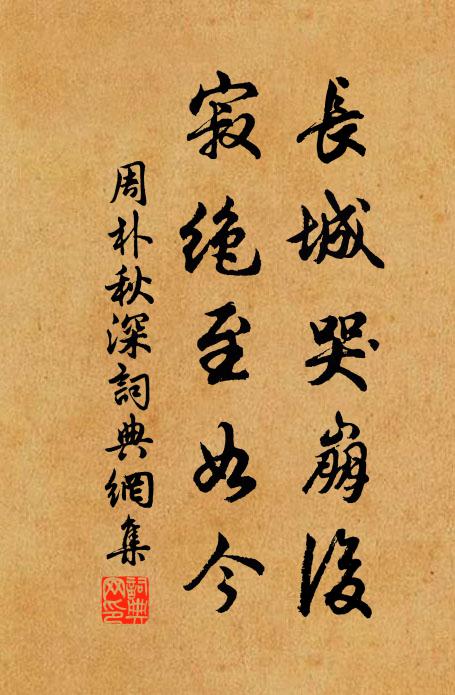 長城哭崩後
寂絶至如今
周朴秋深詞典網集
詞典网印